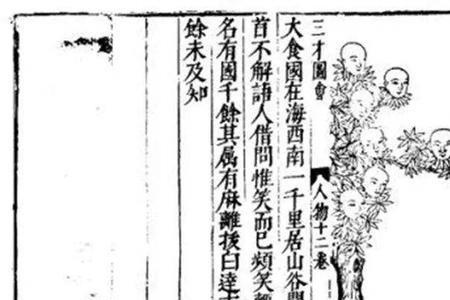 三才圖會
人物十二卷
大食國在海西南一千里居山谷間
首不解語人借問惟笑而已頻笑
名有國千餘其属有麻離拔白達
餘未及知